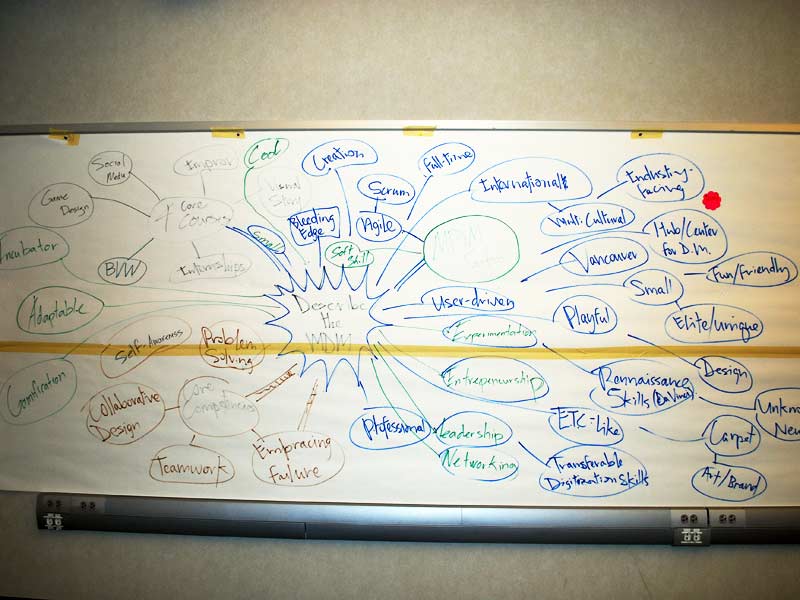 Social
Media
Improv
Cool
Creation
Full-time
Game
Design
4 Core
Courses
Visual
Story
Scrum
International
Industry-
Facing
Bleeding
Edge
Agile
Multi-Cultural
Incubator
BIW
Internships
Small
Soft
Skill
MDM
Vancouver
Hub/Center
for D.M.
Fun/Friendly
Adaptable
Describe
the
MDM
User-driven
Small
Playful
Elite/Unique
Self-Awareness
Problem
Solving
Experimentation
Gamification
Collaborative
Design
Core
Competencies
Entrepeneurship
Rennaissance
Skills (DaVinci)
Design
Unknown
New
Professional
Leadership
Networking
ETC-Like
Carpet
Teamwork
Embracing
Failure
Transferable
Digitization Skills
Art/Brand